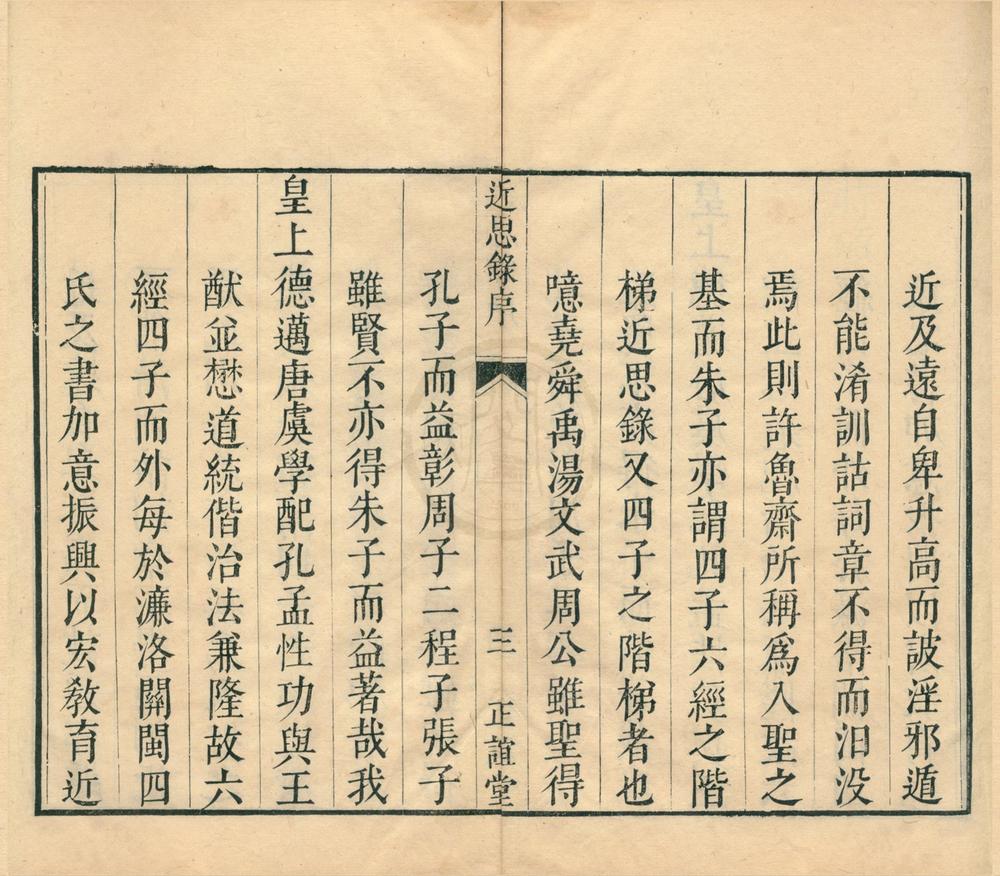 近及遠自卑升高而詖淫邪遁
不能淆訓詁詞章不得而汨没
焉此則許魯齋所稱爲入聖之
基而朱子亦謂四子六經之階
梯近思錄又四子之階梯者也
噫堯舜禹湯文武周公雖聖得
近思錄序 三 正誼堂
孔子而益彰周子二程子張子
雖賢不亦得朱子而益著哉我
皇上德邁唐虞學配孔孟性功與王
猷並懋道統偕治法兼隆故六
經四子而外每於濂洛關閩四
氏之書加意振興以宏敎育近